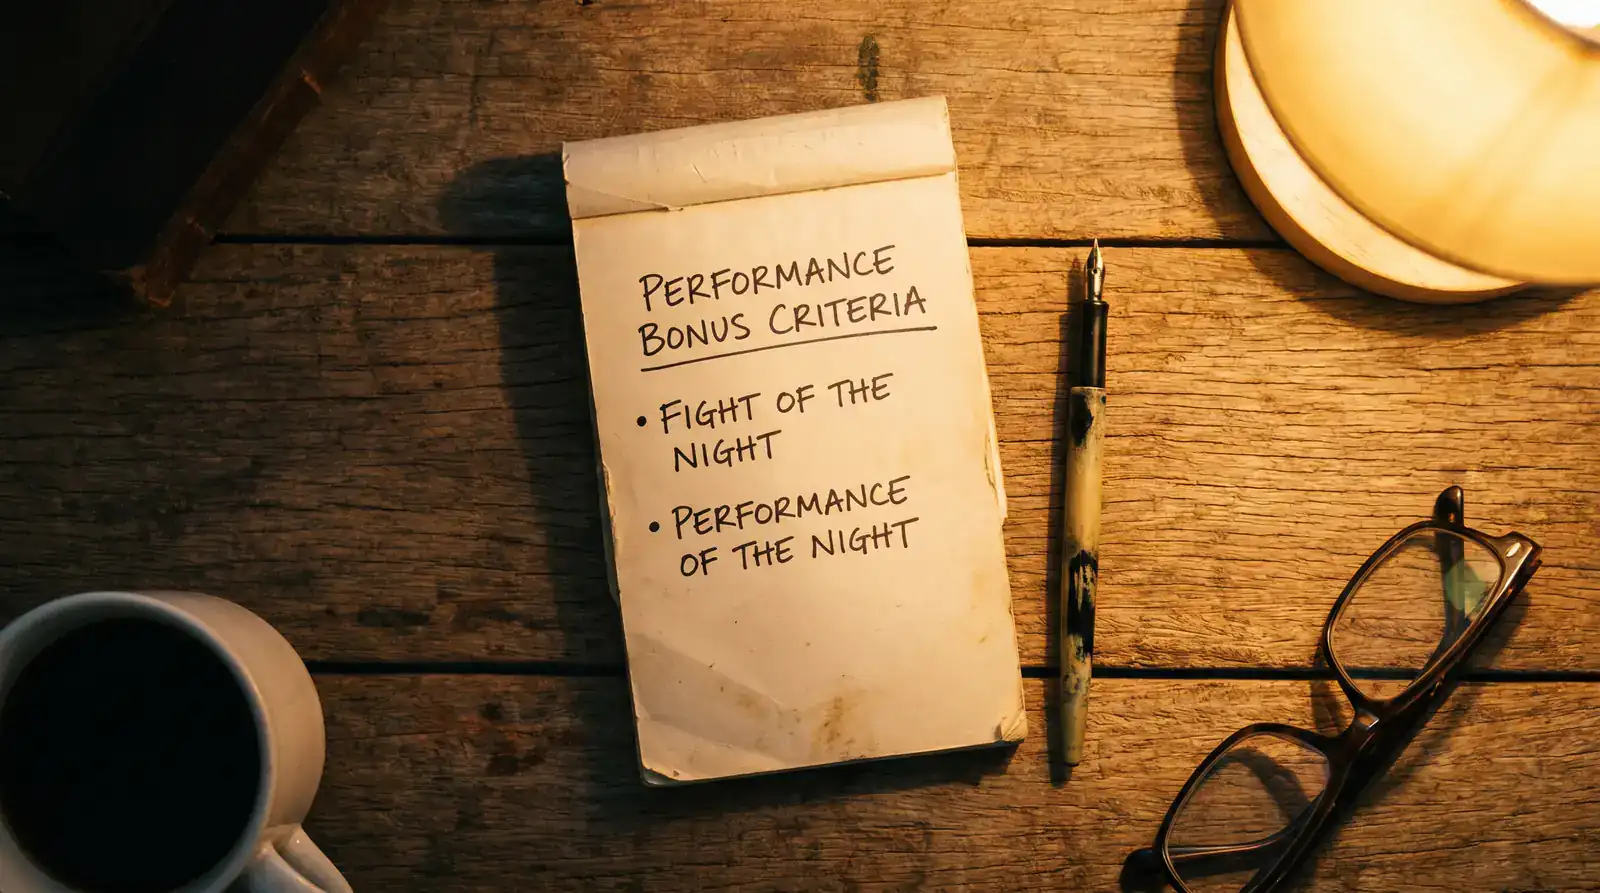 PERFORMANCE
BONUS CRITERIA
• FIGHT OF THE
NIGHT
• PERFORMANCE
OF THE NIGHT